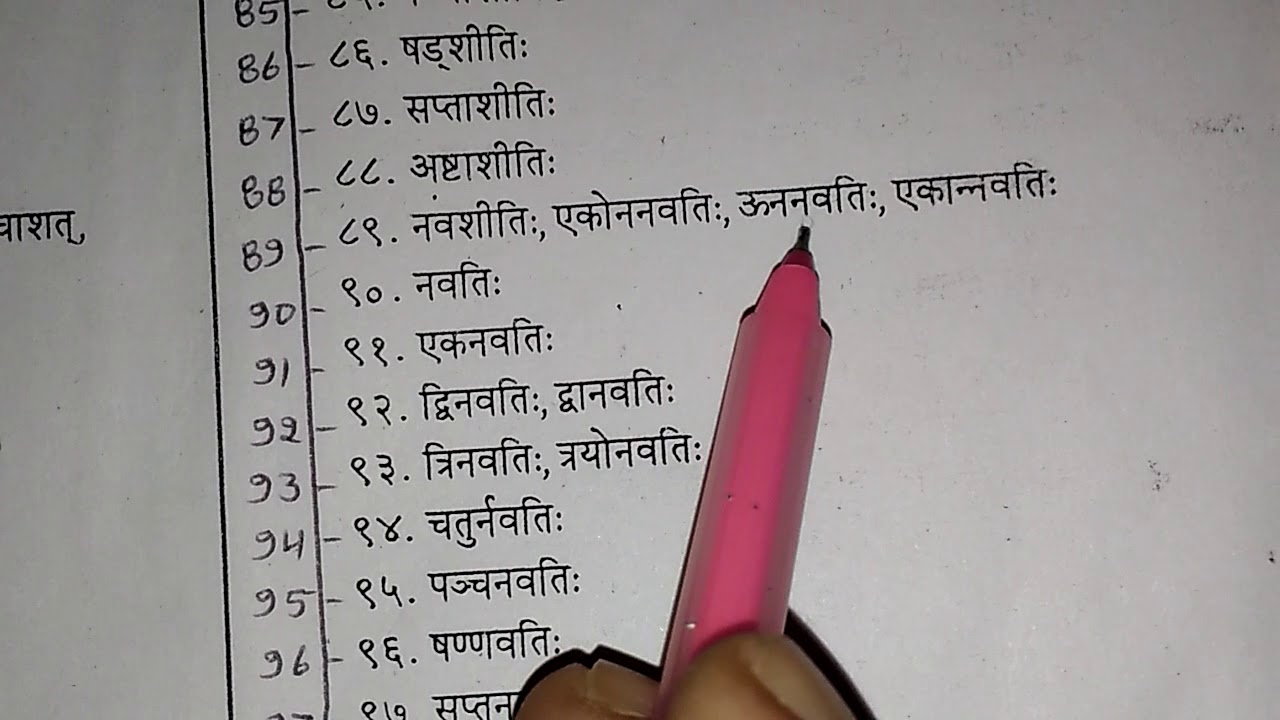 85 -
86 - ८६. षड्शीतिः
87 - ८७. सप्ताशीतिः
88 - ८८. अष्टाशीतिः
वाशत्,
89 - ८९. नवशीतिः, एकोननवतिः, ऊननवतिः, एकान्नवतिः
90 - ९०. नवतिः
91 - ९१. एकनवतिः
92 - ९२. द्विनवतिः, द्वानवतिः
93 - ९३. त्रिनवतिः, त्रयोनवतिः
94 - ९४. चतुर्नवतिः
95 - ९५. पञ्चनवतिः
96 - ९६. षण्णवतिः
९७. सप्तन